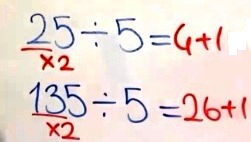 25÷5=4+1
×2
135÷5=26+1
×2